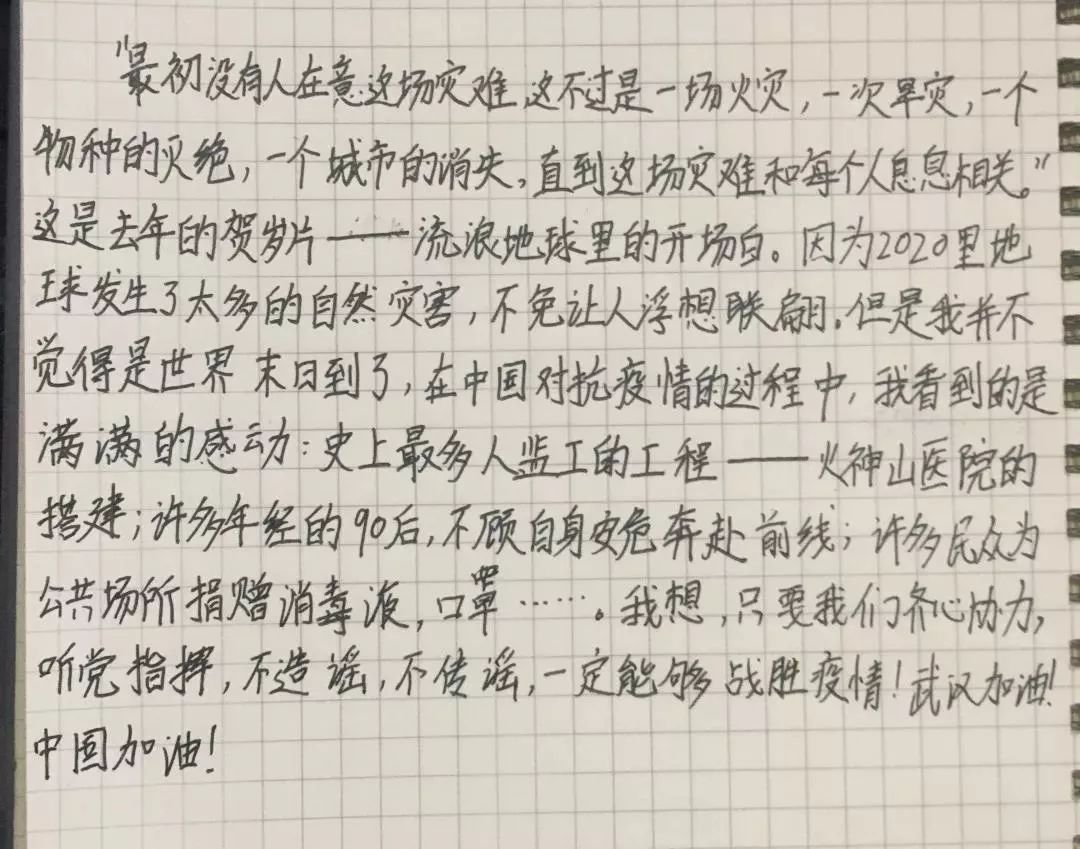 "最初没有人在意这场灾难,这不过是一场火灾,一次旱灾,一个
物种的灭绝,一个城市的消失,直到这场灾难和每个人息息相关。"
这是去年的贺岁片——流浪地球里的开场白。因为2020里地
球发生了太多的自然灾害,不免让人浮想联翩。但是我并不
觉得是世界末日到了,在中国对抗疫情的过程中,我看到的是
满满的感动:史上最多人监工的工程——火神山医院的
搭建;许多年经的90后,不顾自身安危奔赴前线;许多民众为
公共场所捐赠消毒液,口罩……。我想,只要我们齐心协力,
听党指挥,不造谣,不传谣,一定能够战胜疫情!武汉加油!
中国加油!